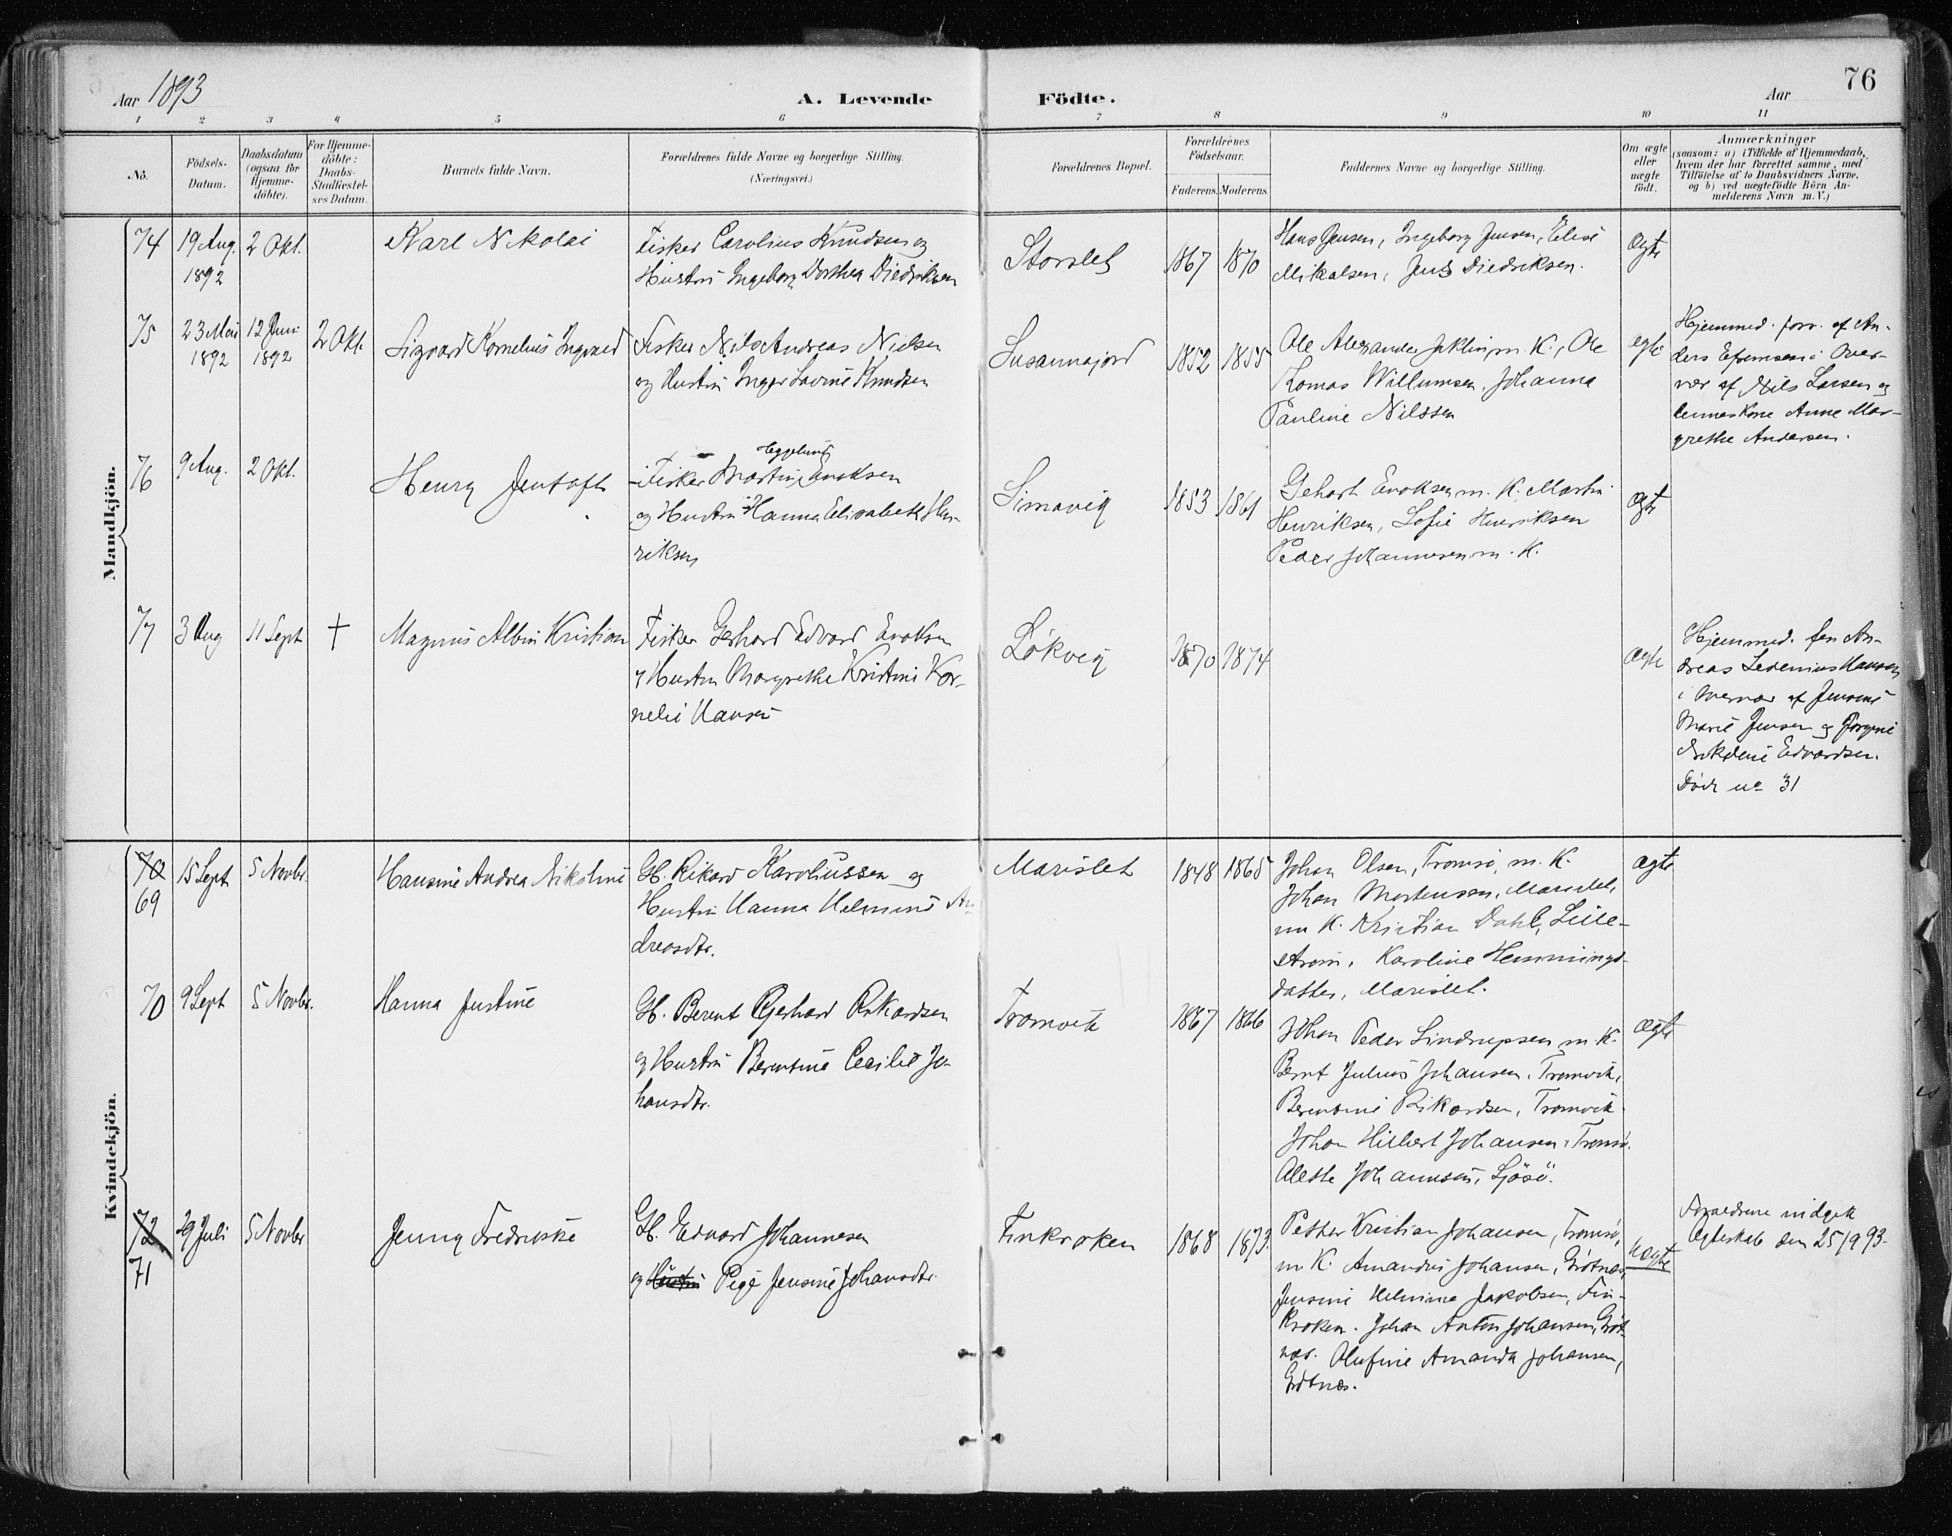 Aar 1893
A. Levende Födte.
Aar
76
1 2 3 4 5 6 7 8 9 10 11
No.
Födsels-
Datum.
Daabsdatum
(ogsaa for
Hjemme-
döbte).
For Hjemme-
döbte:
Daabs-
Stadfæstel-
ses Datum.
Barnets fulde Navn.
Forældrenes fulde Navne og borgerlige Stilling.
(Næringsvei.)
Forældrenes Bopæl.
Forældrenes
Födselsaar.
Faderens. Moderens.
Faddernes Navne og borgerlige Stilling.
Om ægte
eller
uægte
födt.
Anmærkninger
(saasom: a) i Tilfælde af Hjemmedaab,
hvem der har forrettet samme, med
Tilföielse af to Daabsvidners Navne,
og b) ved uægtefödte Börn An-
melderens Navn m. V.)
Mandkjön.
74
19 Aug.
1892
2 Okt.
Karl Nikolai
Fisker Carolius Knudsen og
Hustru Ingeborg Dorthea Diedriksen
Storslet
1867
1870
Hans Jensen, Ingeborg Jensen, Elise
Mikalsen, Jens Diedriksen.
Ægte
75
23 Mai
1892
12 Juni
1892
2 Okt.
Sigvard Kornelius Ingvard
Fisker Nils Andreas Nielsen
og Hustru Inger Lovine Knudsen
Susannajord
1852
1855
Ole Alexander Jaklin m. K., Ole
Tomas Willumsen, Johanna
Pauline Nilssen
Ægte
Hjemmed. forr. af An-
ders Efremsen i Over-
vær af Nils Larsen og
Anne Mar-
grethe Andersen.
76
9 Aug.
2 Okt.
Henry Jentoft
Heggelund
Fisker Martin Enoksen
og Hustru Hanna Elisabeth Hen-
riksen
Simavig
1853
1861
Gehart Enoksen m. K. Martin
Henriksen, Sofie Henriksen
Peder Johannesen m. K.
Ægte
77
3 Aug
11 Sept
†
Magnus Albin Kristian
Fisker Gerhard Edvard Enoksen
og Hustru Margrethe Kristine Kor-
nelie Hansen
Løkvig
1870
1874
Ægte
Hjemmed. fra An-
dreas Hansen
i Overvær af Jensine
Marie Jensen og Jørgine
Edvardsen.
Døde no 31
Kvindekjön.
70
69
15 Sept
5 Novbr.
Hansine Andrea Nikoline
Gb. Rikard Karoliussen og
Hustru Hanna Helmine An-
dreasdtr.
Marislet
1848
1865
Johan Olsen, Tromsø, m. K.
Johan Mortensen, Marislet,
m K. Kristian Dahl, Lille-
strøm, Karoline Hemmings-
datter, Marislet.
Ægte
70
9 Sept
5 Novbr.
Hanna Justine
Gb. Berent Gerhard Rikardsen
og Hustru Berentine Cecilie Jo-
hansdtr.
Tromvik
1867
1866
Johan Peder Lindrupsen m K.
Bernt Julius Johansen, Tromvik,
Berentine Rikardsen, Tromvik
Johan Hilbert Johansen, Tromsø.
Alethe Johannesen, Sjøsø.
Ægte
72
71
29 Juli
5 Novbr
Jenny Fredrikke
Gb. Edvard Johannesen
og Hustru Pige Jensine Johansdtr.
Finkroken
1868
1873.
Petter Kristian Johansen, Tromsø,
m K. Amandus Johansen, Grøtnæs,
Jensine Helmina Jakobsen, Fin-
kroken. Johan Anton Johansen, Grøt-
næs. Olufine Amanda Johansen,
Grøtnæs.
Uægte
Forældrene indgik
Ægteskab den 25/9 93.